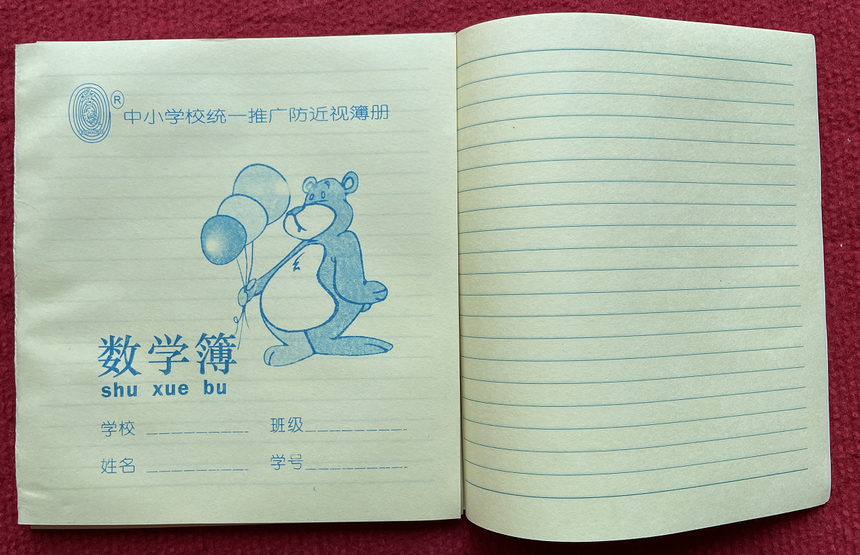 ® 中小学校统一推广防近视簿册
数学簿
shu xue bu
学校 班级
姓名 学号